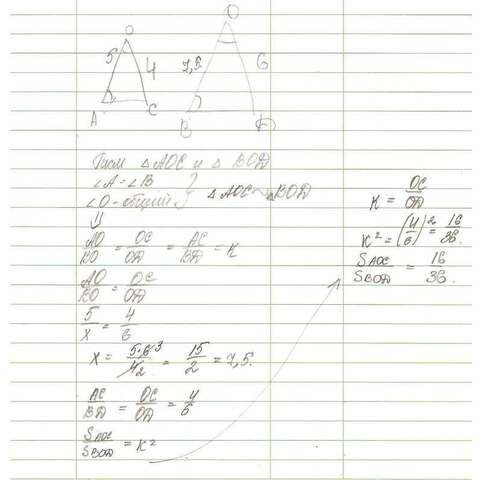 O
5
4
A
C
O
7,5.
6
B
D
Расм △AOC и △ BOD
∠A = ∠B
∠O - общий } △ AOC ~ △BOD
⇓
AO/BO = OC/OD = AC/BD = K
AO/BO = OC/OD
5/x = 4/6
x = 5·6³/4₂ = 15/2 = 7,5.
AC/BD = OC/OD = 4/6
S AOC/S BOD = K²
K = OC/OD
K² = (4/6)² = 16/36.
S AOC/S BOD = 16/36.